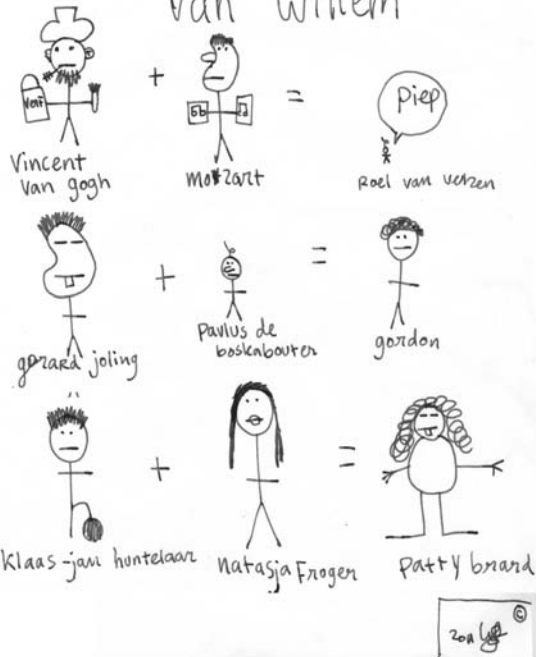 van Willem
verf
+
=
piep
Vincent
van gogh
mozart
Roel van velzen
+
=
gerard joling
paulus de
boskabouter
gordon
+
=
Klaas-jan huntelaar
natasja Froger
patty brard
©
2011